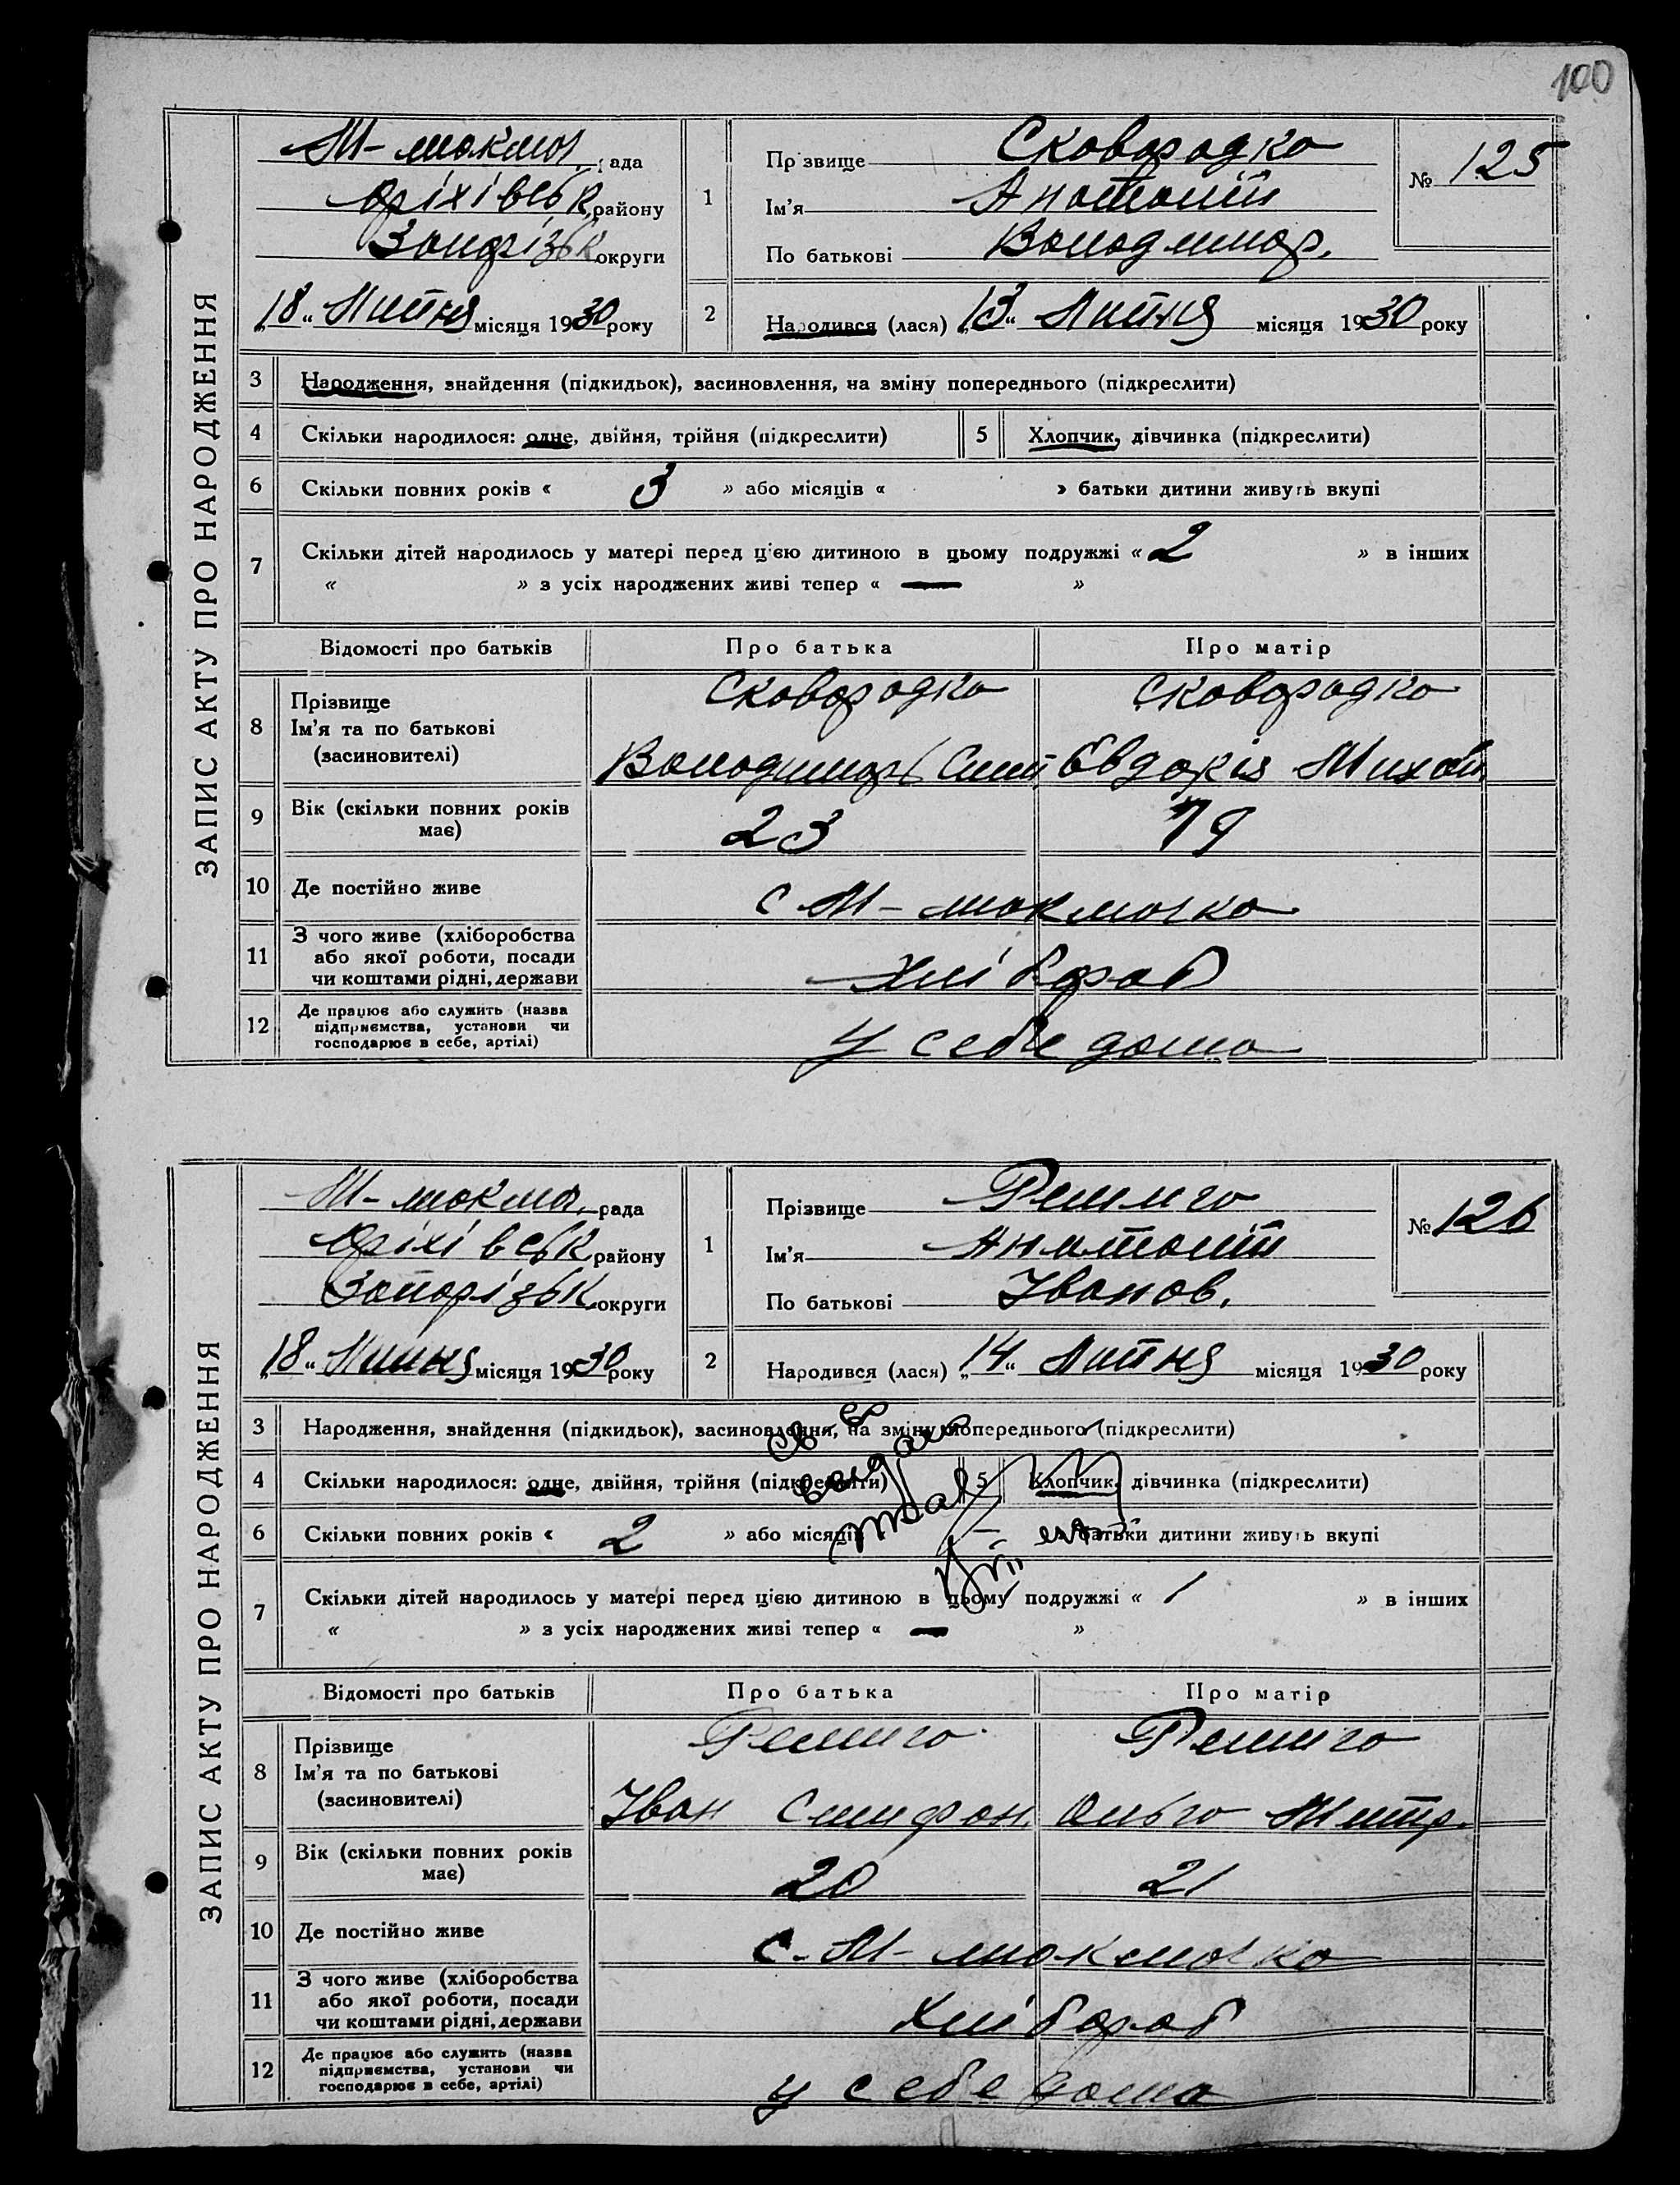 100
ЗАПИС АКТУ ПРО НАРОДЖЕННЯ
М-токмач. рада
Оріхівськ. району
Запорізьк. округи
„18“ Липня місяця 1930 року
1
Прізвище Сковородка
Ім'я Анатолій
По батькові Володимир.
№ 125
2
Народився (лася) „13“ Липня місяця 1930 року
3 Народження, знайдення (підкидьок), засиновлення, на зміну попереднього (підкреслити)
4 Скільки народилося: одне, двійня, трійня (підкреслити) 5 Хлопчик, дівчинка (підкреслити)
6 Скільки повних років « 3 » або місяців « » батьки дитини живуть вкупі
7 Скільки дітей народилось у матері перед цією дитиною в цьому подружжі « 2 » в інших
« » з усіх народжених живі тепер « — »
Відомості про батьків Про батька Про матір
8 Прізвище
Ім'я та по батькові
(засиновителі)
Сковородка Сковородка
Володимирь Евдокія Михайл.
9 Вік (скільки повних років
має)
23 19
10 Де постійно живе с М-токмачка
11 З чого живе (хліборобства
або якої роботи, посади
чи коштами рідні, держави
Хлібороб
12 Де працює або служить (назва
підприємства, установи чи
господарює в себе, артілі)
У себе дома
ЗАПИС АКТУ ПРО НАРОДЖЕННЯ
М-токмач. рада
Оріхівськ району
Запорізьк. округи
„18“ Липня місяця 1930 року
1
Прізвище Ремиго
Ім'я Анатолій
По батькові Іванов.
№ 126
2
Народився (лася) „14“ Липня місяця 1930 року
3 Народження, знайдення (підкидьок), засиновлення, на зміну попереднього (підкреслити)
4 Скільки народилося: одне, двійня, трійня (підкреслити) 5 Хлопчик, дівчинка (підкреслити)
6 Скільки повних років « 2 » або місяців — батьки дитини живуть вкупі
7 Скільки дітей народилось у матері перед цією дитиною в цьому подружжі « 1 » в інших
« » з усіх народжених живі тепер « — »
Відомості про батьків Про батька Про матір
8 Прізвище
Ім'я та по батькові
(засиновителі)
Ремиго Ремиго
Іван Ольго Митр.
9 Вік (скільки повних років
має)
20 21
10 Де постійно живе с. М-токмачка
11 З чого живе (хліборобства
або якої роботи, посади
чи коштами рідні, держави
Хлібороб
12 Де працює або служить (назва
підприємства, установи чи
господарює в себе, артілі)
у себе дома